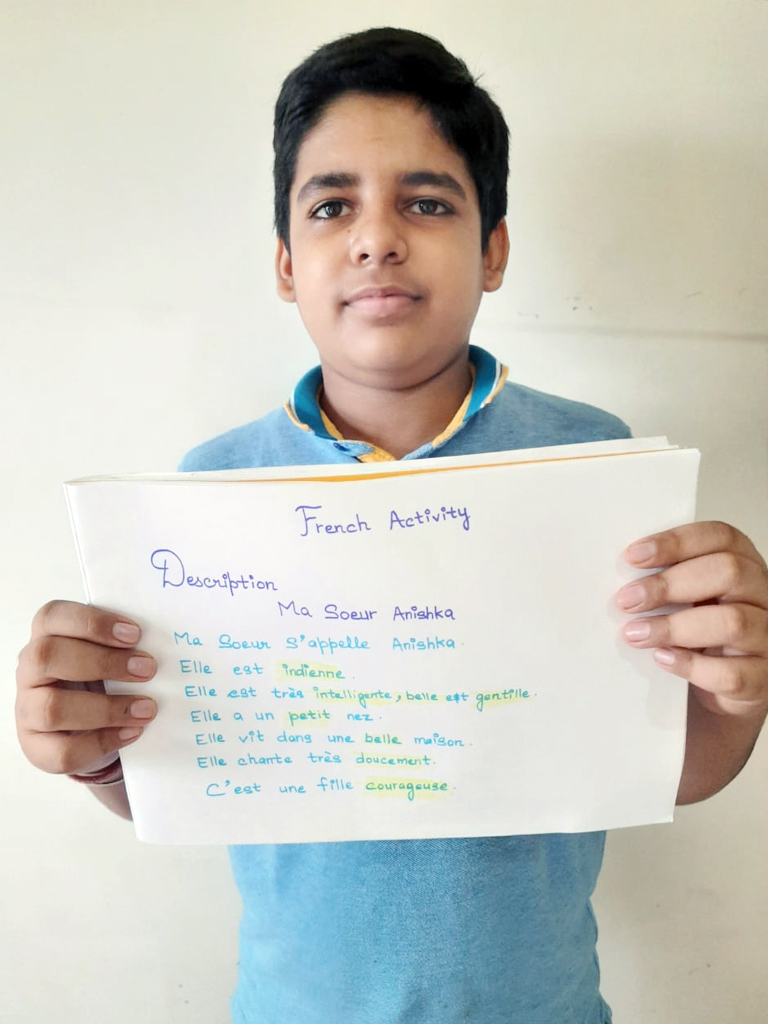 French Activity
Description
Ma Soeur Anishka
Ma Soeur s'appelle Anishka.
Elle est indienne.
Elle est très intelligente, belle est gentille.
Elle a un petit nez.
Elle vit dans une belle maison.
Elle chante très doucement.
C'est une fille courageuse.